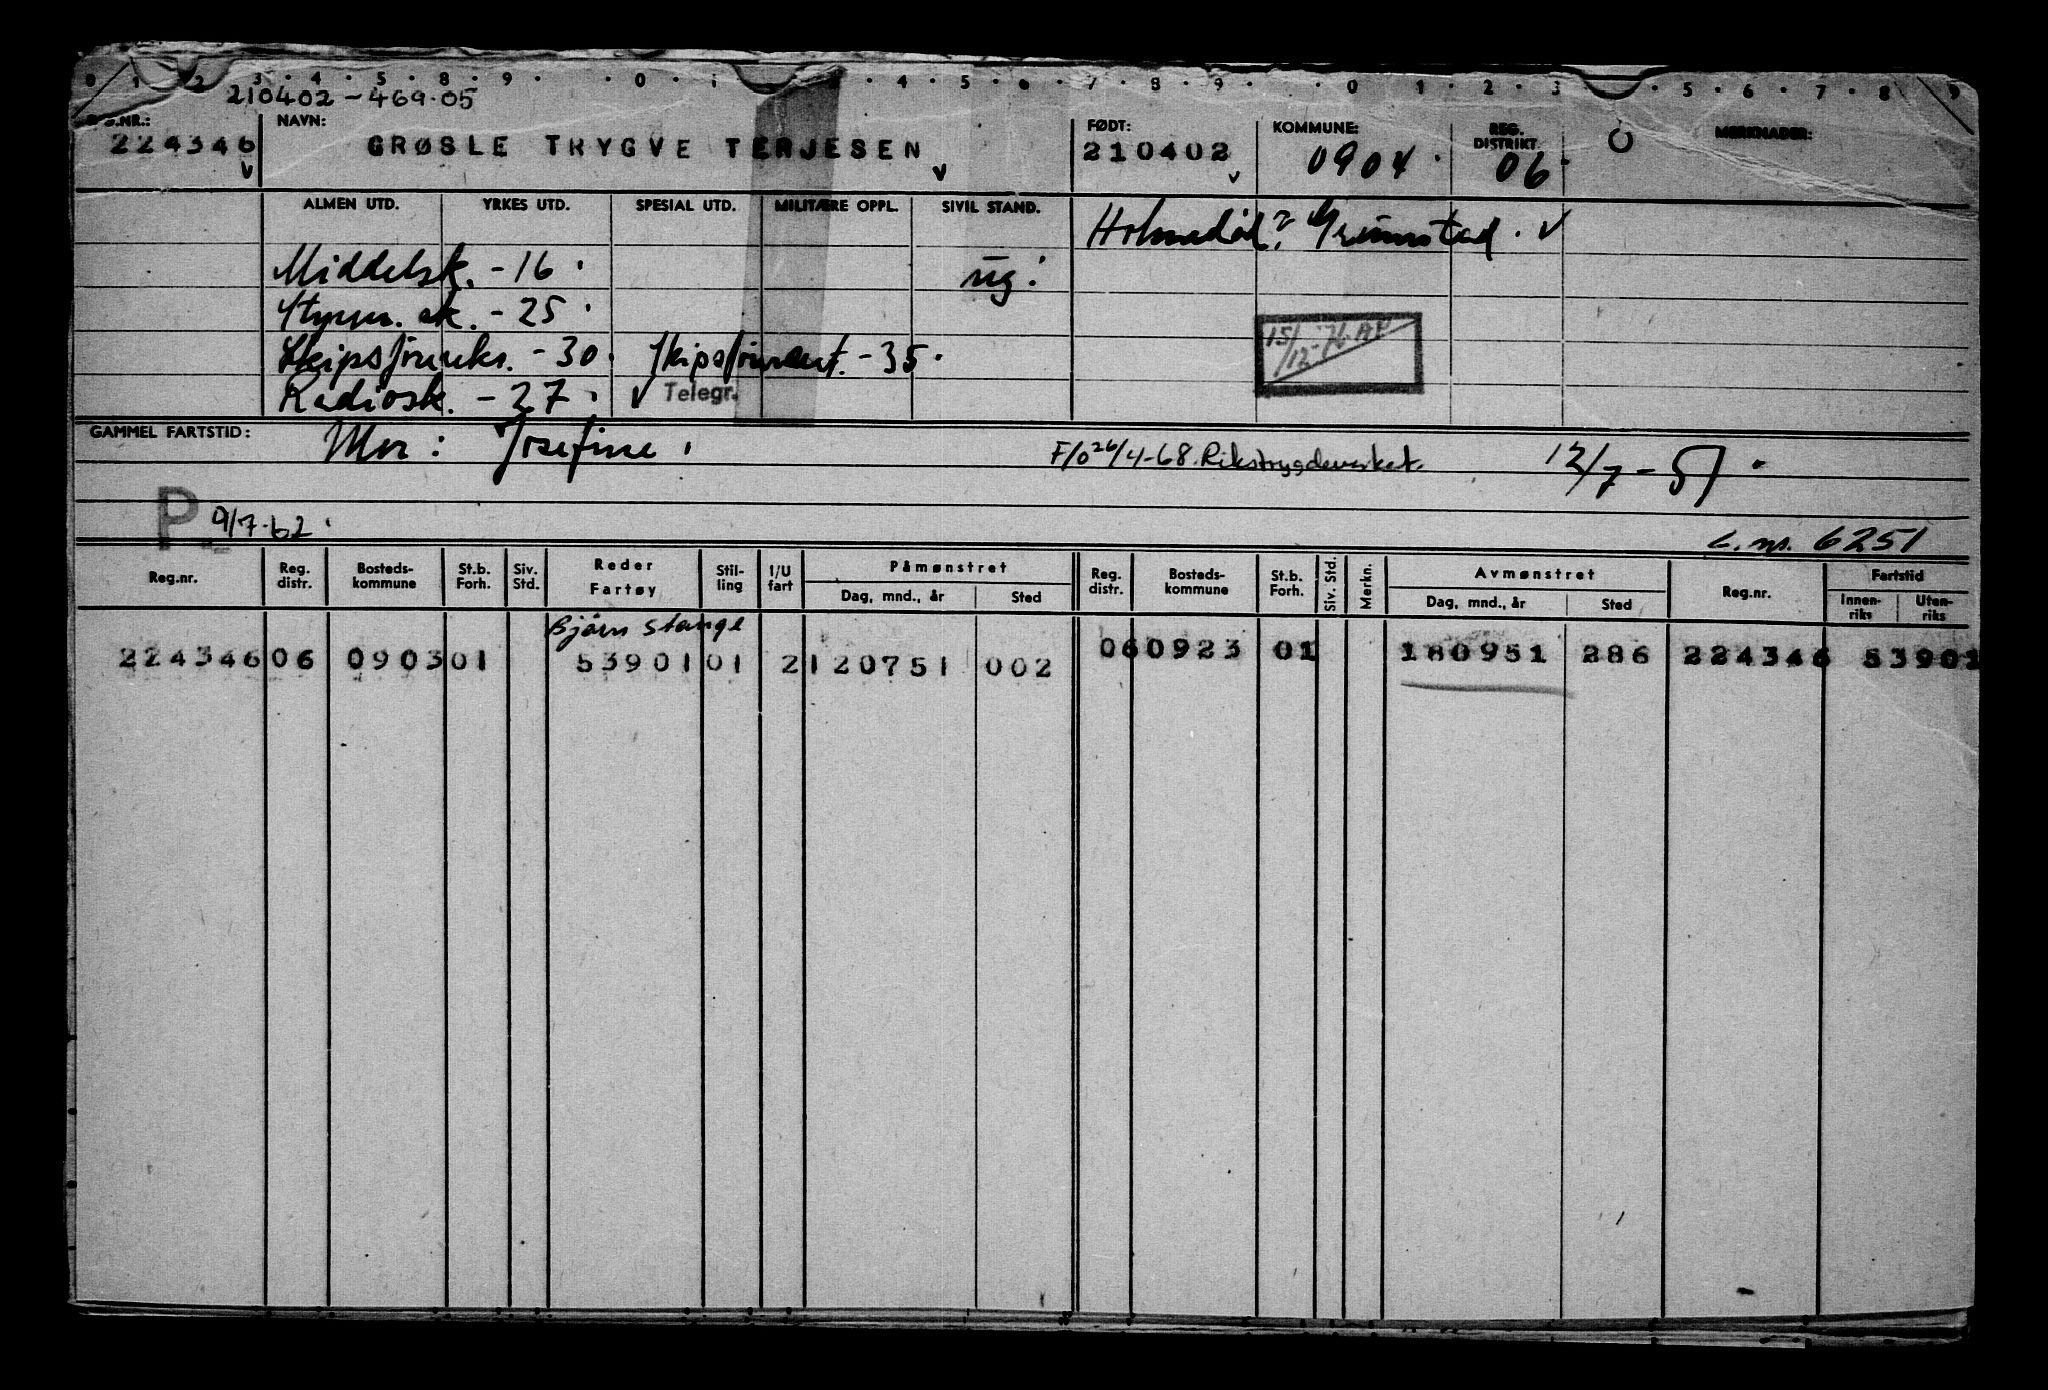 0 1 2 3 · 4 · 5 · 8 · 9 · · 0 · 1 3 · 4 · 5 · 6 · 7 · 8 · 9 · · 0 1 · 2 · 3 · 5 · 6 · 7 · 8 9
210402-469.05
NR.: NAVN: FØDT: KOMMUNE: REG. DISTRIKT MERKNADER:
224346 GRØSLE TRYGVE TERJESEN 210402 0904 06
ALMEN UTD. YRKES UTD. SPESIAL UTD. MILITÆRE OPPL. SIVIL STAND.
Grimstad.
Middelsk. - 16 ug.
Styrm. sk. - 25
15/12-76 AP
Skipsførereks. - 30 Skipsførersert. - 35
Radiosk. - 27 Telegr.
GAMMEL FARTSTID: Mor: Josefine
F/o 26/4-68. Rikstrygdeverket. 12/7-51
P 9/7-62
L. nr. 6251
Reg.nr. Reg. distr. Bosteds-kommune St.b. Forh. Siv. Std. Reder Fartøy Stil-ling I/U fart Påmønstret Dag, mnd., år Sted Reg. distr. Bosteds-kommune St.b. Forh. Siv. Std. Merkn. Avmønstret Dag, mnd., år Sted Reg.nr. Fartstid Innen-riks Uten-riks
Bjørn Stange
224346 06 0903 01 53901 01 2 120751 002 06 0923 01 180951 286 224346 53901